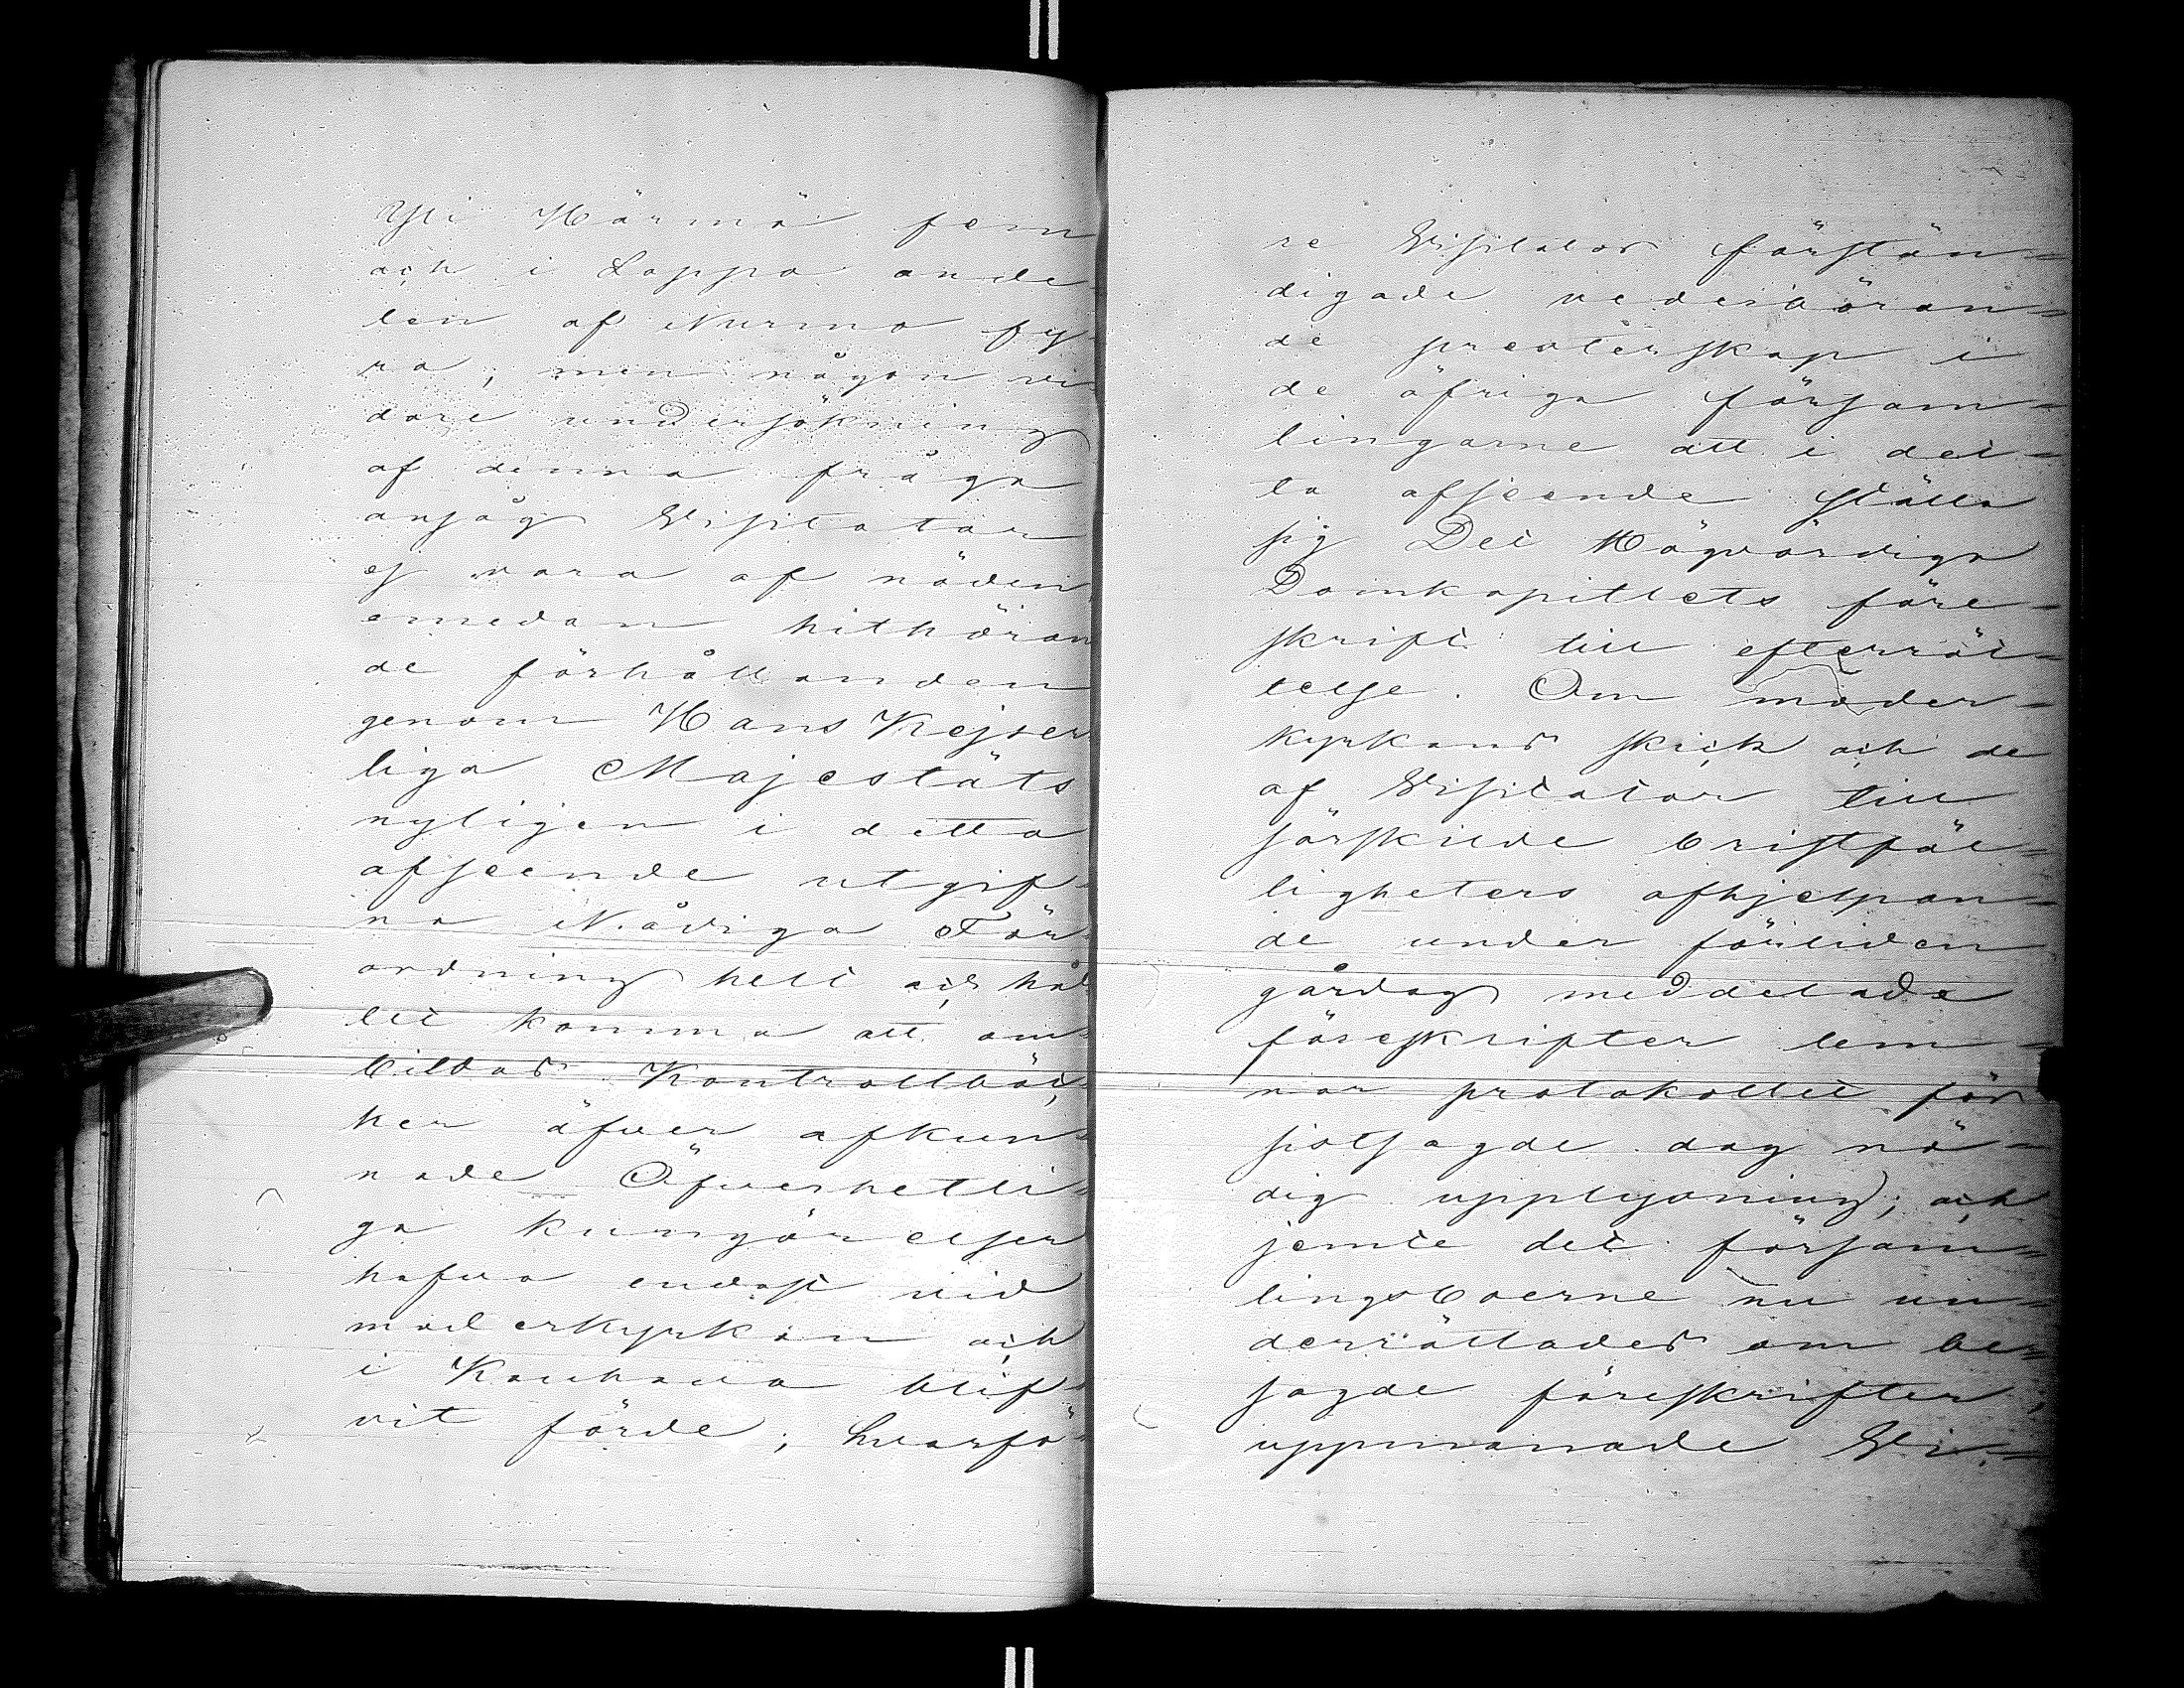 Yli Härmä fem
och i Lappo ande-
len af Nurmo fy-
ra; men någon vi-
dare undersökning
af denna fråga
ansåg Visitator
ej vara af nöden,
emedan hithöran-
de förhållanden
genom Hans Kejser-
liga Majestäts
nyligen i detta
afseende utgif-
na Nådiga För-
ordning helt och hål-
let komma att om-
bildas. Kontrollböc-
ker öfver afkun-
nade Öfverhetli-
ga kungörelser
hafva endast vid
moderkyrkan och
i Kauhava blif-
vit förde; hvarfö-
re Visitator förstän-
digade vederböran-
de presterskap i
de öfriga försam-
lingarne att i det-
ta afseende ställa
sig Det Högvördiga
Domkapitlets före-
skrift till efterrät-
telse. Om moder-
kyrkans skick och de
af Visitator till
särskilde bristfäl-
ligheters afhjelpan-
de under förliden
gårdag meddelade
föreskrifter lem-
nar protokollet för
sistsagde dag nö-
dig upplysning; och
jemte det försam-
lingsboerne nu un-
derrättades om be-
sagde föreskrifter,
uppmanade Vi-